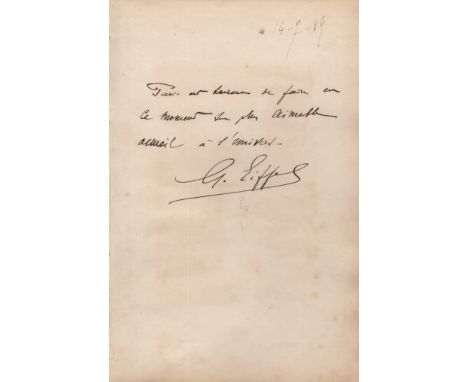 14-7-89
Paris est heureux de faire en
ce moment son plus aimable
accueil à l'univers -
G. Eiffel